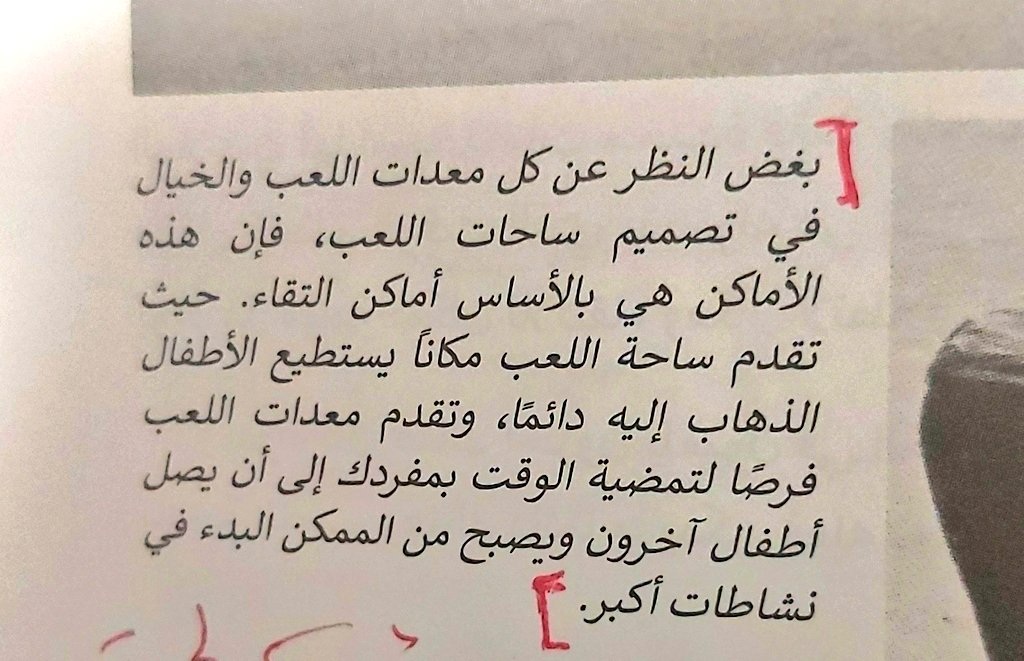 بغض النظر عن كل معدات اللعب والخيال
في تصميم ساحات اللعب، فإن هذه
الأماكن هي بالأساس أماكن التقاء. حيث
تقدم ساحة اللعب مكاناً يستطيع الأطفال
الذهاب إليه دائمًا، وتقدم معدات اللعب
فرصًا لتمضية الوقت بمفردك إلى أن يصل
أطفال آخرون ويصبح من الممكن البدء في
نشاطات أكبر.